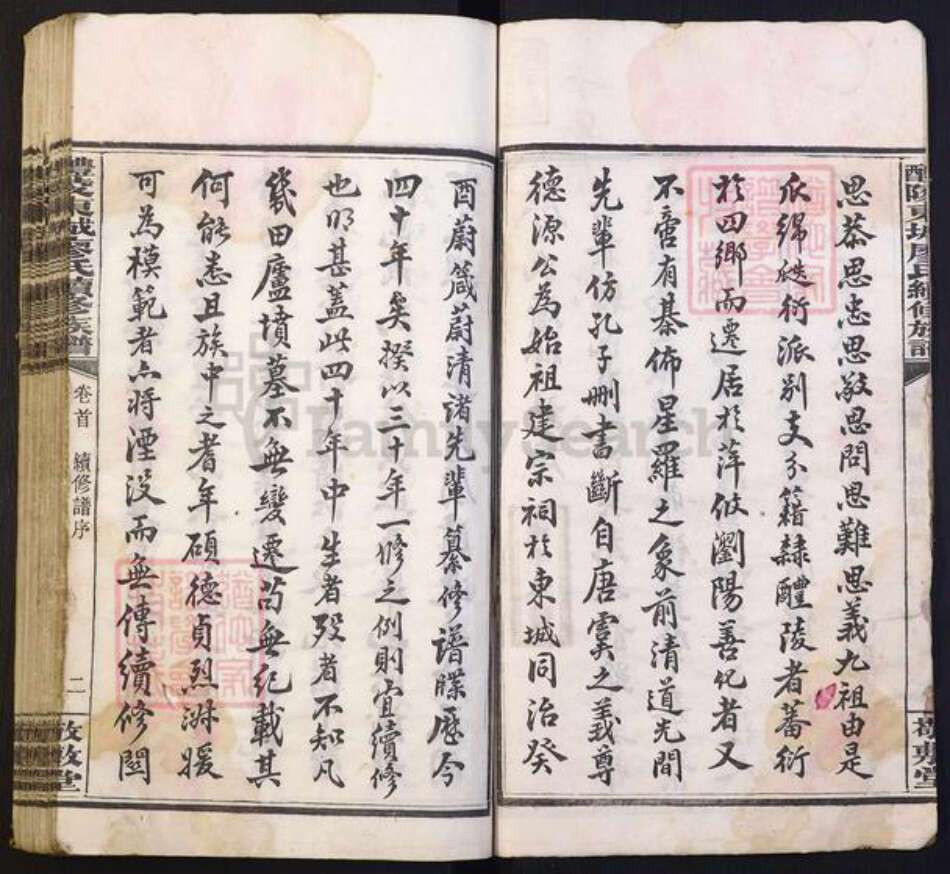 醴陵東城廖氏續修族譜
思恭思忠思敬思問思難思義九祖由是
瓜綿瓞衍派別支分籍隸醴陵者蕃衍
於四鄉而遷居於萍攸瀏陽善化者又
不啻有棊佈星羅之象前清道光間
先輩仿孔子刪書斷自唐虞之義尊
德源公為始祖建宗祠於東城同治癸
酉蔚箴蔚清諸先輩纂修譜牒歷今
四十年矣揆以三十年一修之例則宜續修
也明甚蓋此四十年中生者歿者不知凡
幾田廬墳墓不無變遷苟無紀載其
何能悉且族中之耆年碩德貞烈淑媛
可為模範者亦將湮沒而無傳續修關
醴陵東城廖氏續修族譜
卷首 續修譜序
二
FamilySearch